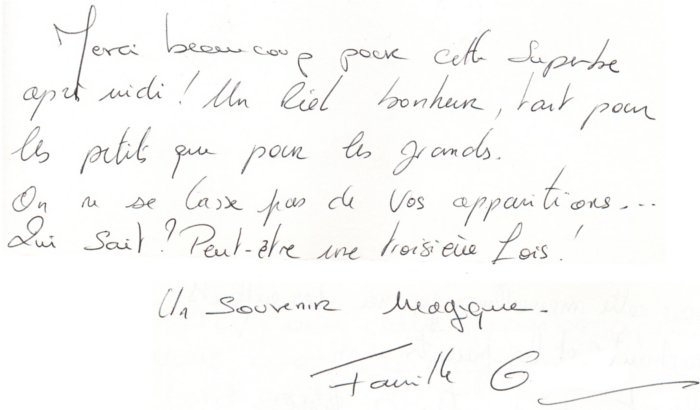 Merci beaucoup pour cette superbe
après midi ! Un réel bonheur, tant pour
les petits que pour les grands.
On ne se lasse pas de vos apparitions...
Qui sait ? Peut-être une troisième fois !
Un souvenir magique.
Famille G